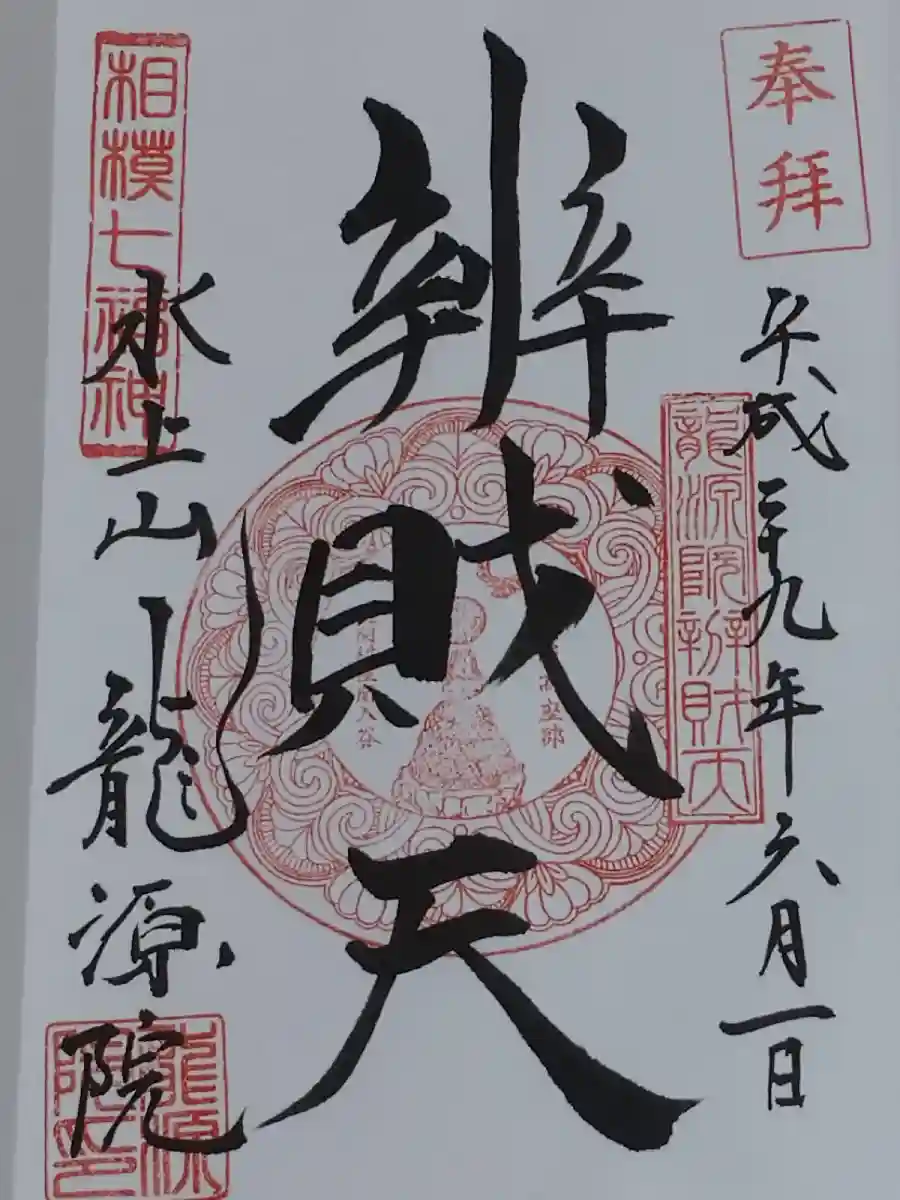 奉拝
平成二十九年六月一日
龍源院辨財天
辨財天
相模七福神
水上山龍源院
龍源院印